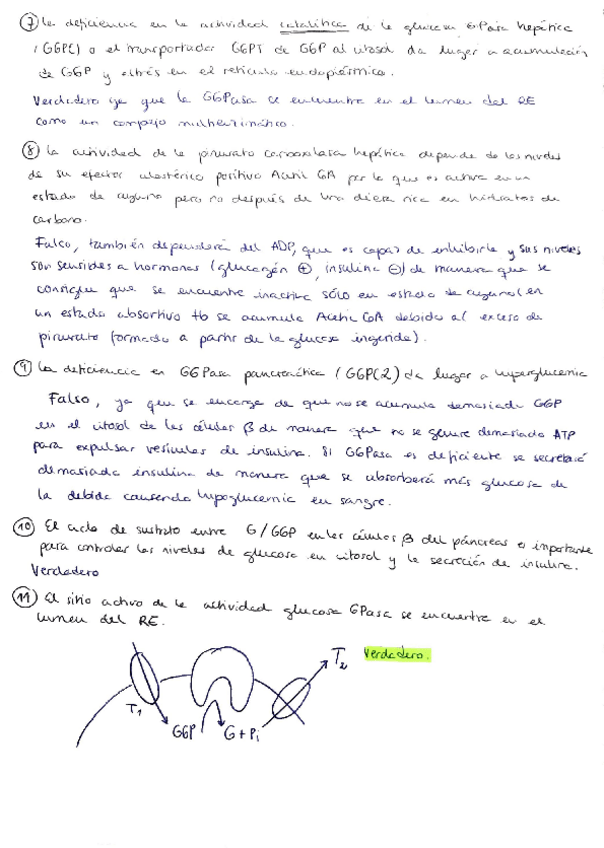 ⑦ La deficiencia en la actividad catalítica de la glucosa 6Pasa hepática
(G6PC) o el transportador G6PT de G6P al citosol da lugar a acumulación
de G6P y estrés en el retículo endoplásmico.
Verdadero ya que la G6Pasa se encuentra en el lumen del RE
como un complejo multienzimático.
⑧ La actividad de la piruvato carboxilasa hepática depende de los niveles
de su efector alostérico positivo Acetil CoA por lo que es activa en un
estado de ayuno pero no después de una dieta rica en hidratos de
carbono.
Falso, también dependerá del ADP, que es capaz de inhibirla y sus niveles
son sensibles a hormonas (glucagón ⊕, insulina ⊖) de manera que se
consigue que se encuentre inactiva sólo en estado de ayuno (en
un estado absortivo tb se acumula Acetil CoA debido al exceso de
piruvato formado a partir de la glucosa ingerida).
⑨ La deficiencia en G6Pasa pancreática (G6PC2) da lugar a hiperglucemia
Falso, ya que se encarga de que no se acumule demasiada G6P
en el citosol de las células β de manera que no se genere demasiado ATP
para expulsar vesículas de insulina. Si G6Pasa es deficiente se secretará
demasiada insulina de manera que se absorberá más glucosa de
la debida causando hipoglucemia en sangre.
⑩ El ciclo de sustrato entre G/G6P en las células β del páncreas es importante
para controlar los niveles de glucosa en citosol y la secreción de insulina.
Verdadero
⑪ El sitio activo de la actividad glucosa 6Pasa se encuentra en el
lumen del RE.
T2 Verdadero.
T1
G6P G+Pi